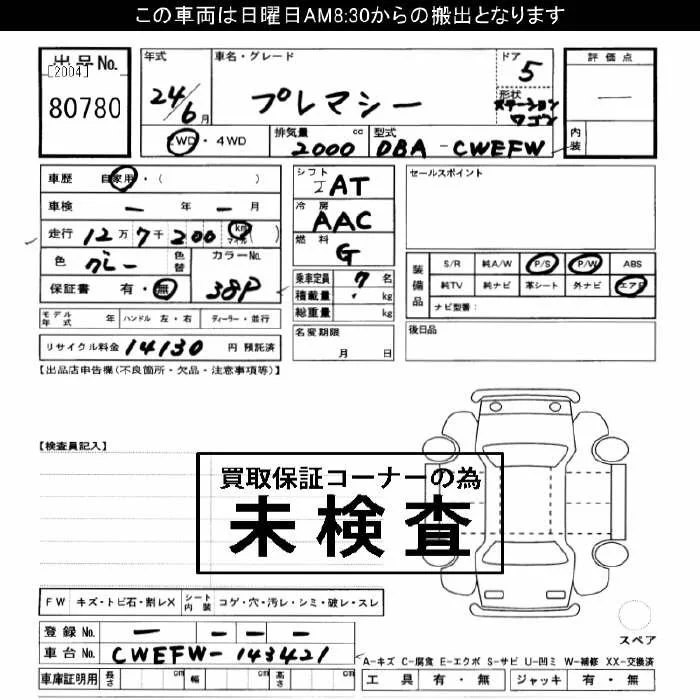 この車両は日曜日AM8:30からの搬出となります
出品No.
[2004]
80780
年式
24/6月
車名・グレード
プレマシー
ドア
5
形状
ステーションワゴン
評価点
—
内装
2WD・4WD
排気量 cc
2000
型式
DBA-CWEFW
車歴 自家用・( )
車検 — 年 — 月
走行 12万7千200 km マイル( )
色 グレー 色替 カラーNo. 38P
保証書 有・無
シフト IAT
冷房 AAC
燃料 G
乗車定員 7名
積載量 ・ kg
総重量 kg
名変期限
月 日
セールスポイント
装備品
S/R 純A/W P/S P/W ABS
純TV 純ナビ 革シート 外ナビ エアB
ナビ型番：
後日品
モデル年式 年 ハンドル 左・右 ディーラー・並行
リサイクル料金 14130 円 預託済
【出品店申告欄(不良箇所・欠品・注意事項等)】
【検査員記入】
買取保証コーナーの為
未検査
FW キズ・トビ石・割レX シート内装 コゲ・穴・汚レ・シミ・破レ・スレ
登録No. — — — —
車台No. CWEFW-143421
車庫証明用 長さ cm 幅 cm 高さ cm
スペア
A-キズ C-腐食 E-エクボ S-サビ U-凹ミ W-補修 XX-交換済
工具 有・無 ジャッキ 有・無